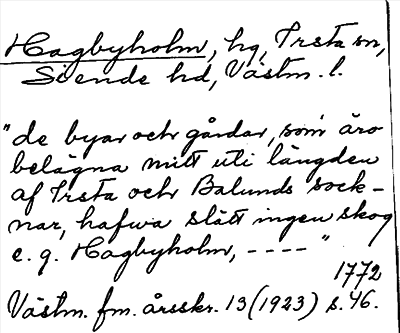 Hagbyholm, hg, Irsta sn,
Siende hd, Västm. l.
"de byar och gårdar, som äro
belägna mitt uti längden
af Irsta och Balunds sock-
nar, hafwa slätt ingen skog
e. g. Hagbyholm, ----"
1772
Västm. fm. årsskr. 13 (1923) s. 46.